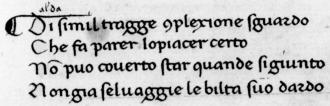 alda
Di simil tragge ꝯplexione sguardo
Che fa parer lopiacer certo
Nō puo couerto star quande sigiunto
Nongia seluaggie le bilta suo dardo